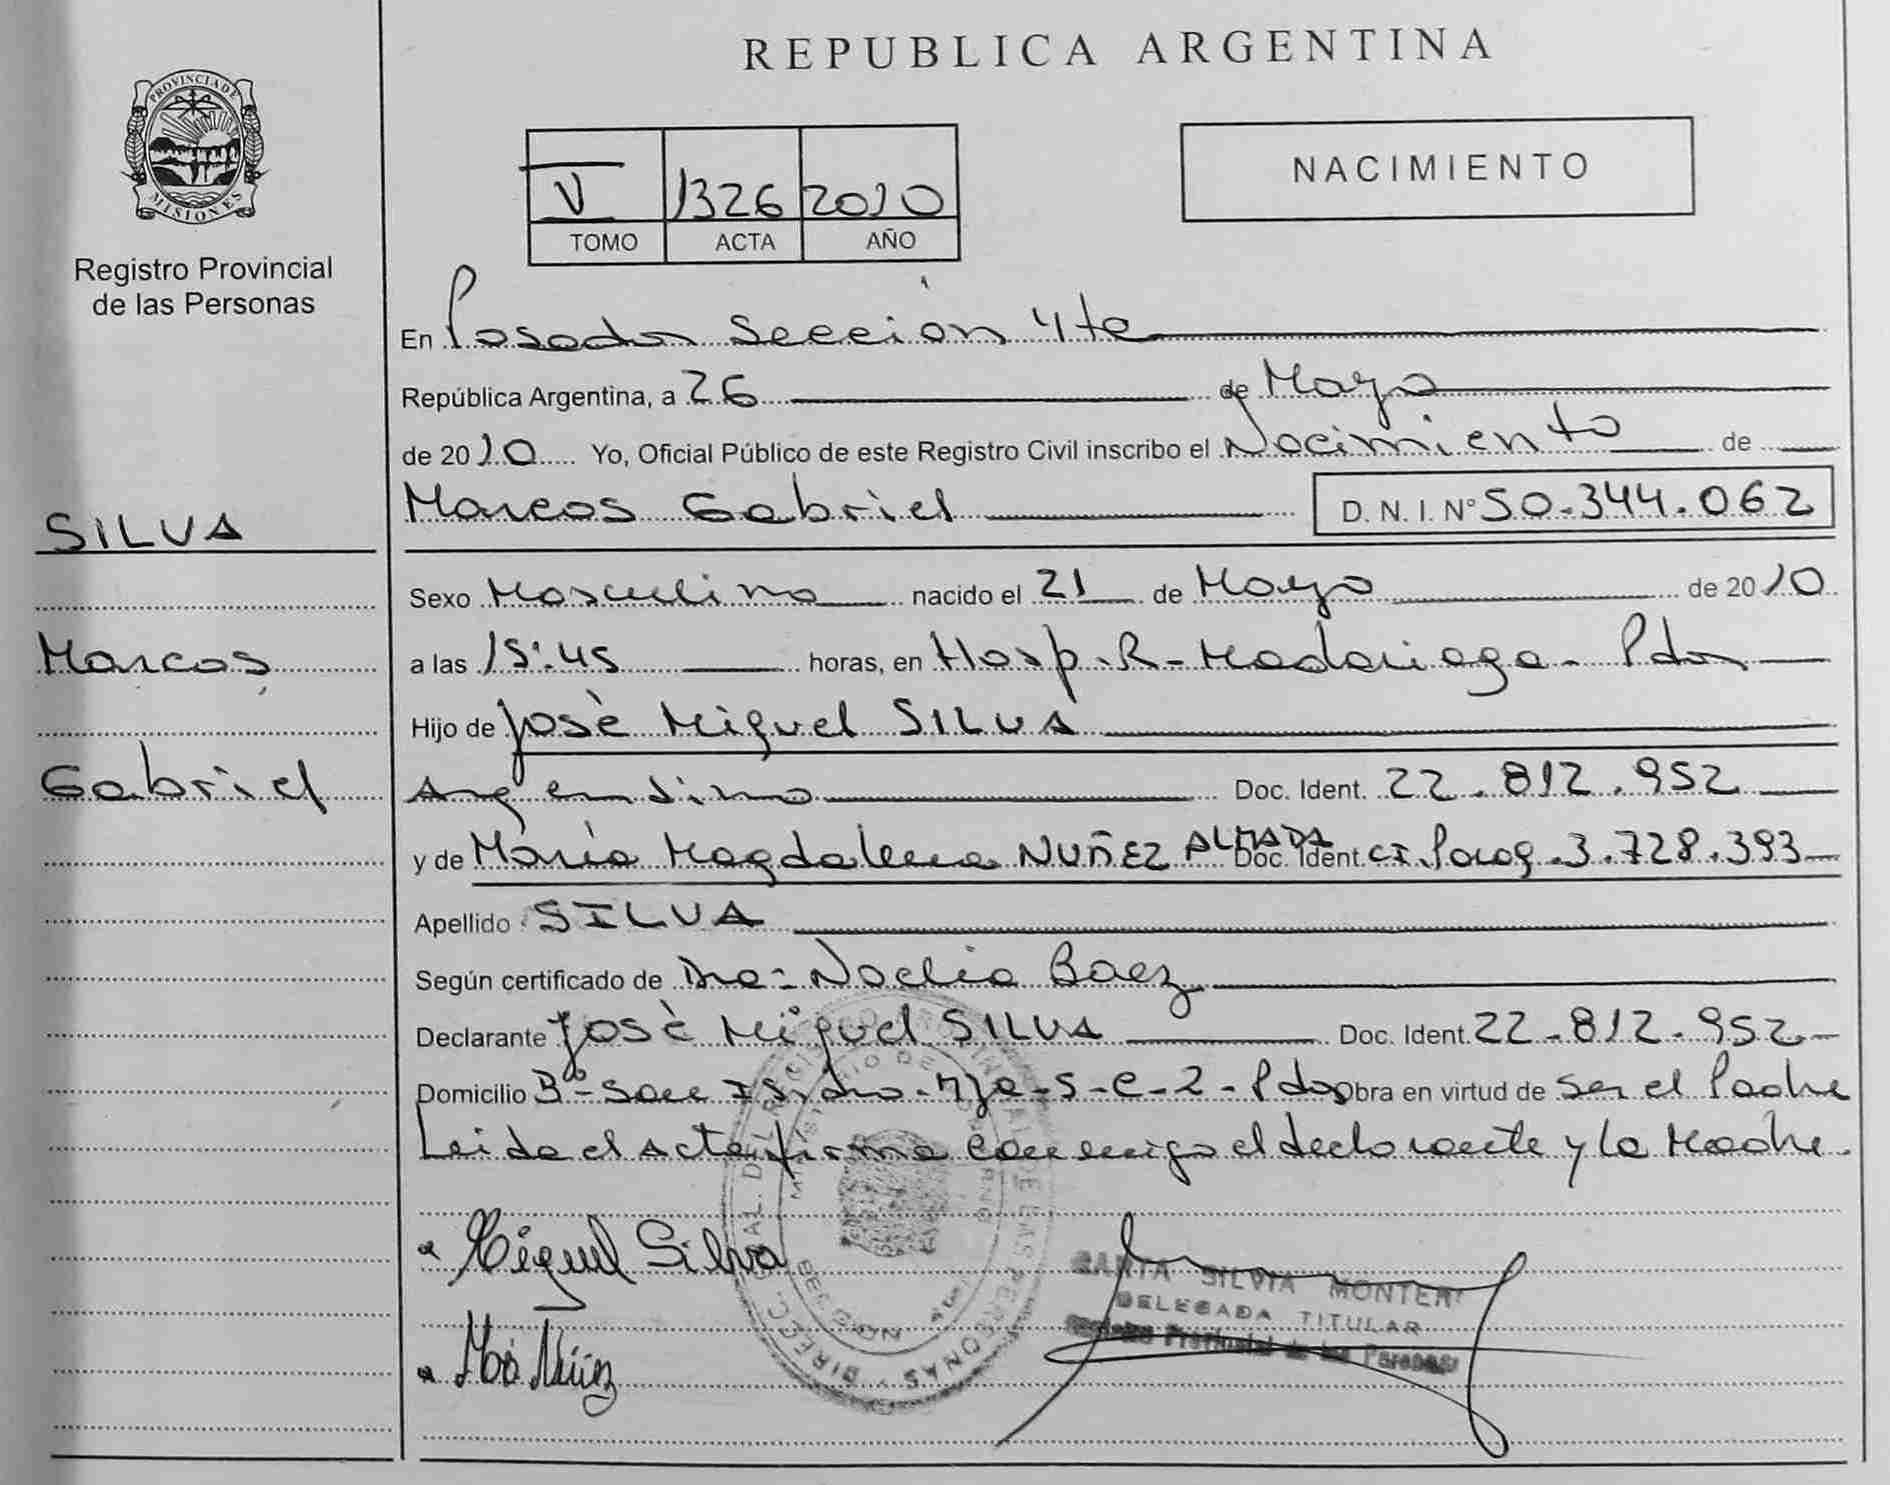 REPUBLICA ARGENTINA
PROVINCIA DE MISIONES
Registro Provincial
de las Personas
V 1326 2010
TOMO ACTA AÑO
NACIMIENTO
En Posadas Sección 4ta
República Argentina, a 26 de Mayo
de 2010 Yo, Oficial Público de este Registro Civil inscribo el Nacimiento de
Marcos Gabriel D. N. I. Nº 50.344.062
SILVA
Marcos
Gabriel
Sexo Masculino nacido el 21 de Mayo de 2010
a las 15:45 horas, en Hosp. R. Madariaga - Pdas
Hijo de José Miguel SILVA
Argentino Doc. Ident. 22.812.952
y de María Magdalena NUÑEZ ALMADA Doc. Ident. CI. Parag. 3.728.393
Apellido SILVA
Según certificado de Dra. Noelia Baez
Declarante José Miguel SILVA Doc. Ident. 22-812-952
Domicilio Bº San Isidro - Mza - 5 - C - 2 - Pdas Obra en virtud de ser el Padre
Leida el Acta firma conmigo el declarante y la Madre.
Miguel Silva
Núñez
SILVIA MONTER
DELEGADA TITULAR
Registro Provincial de las Personas